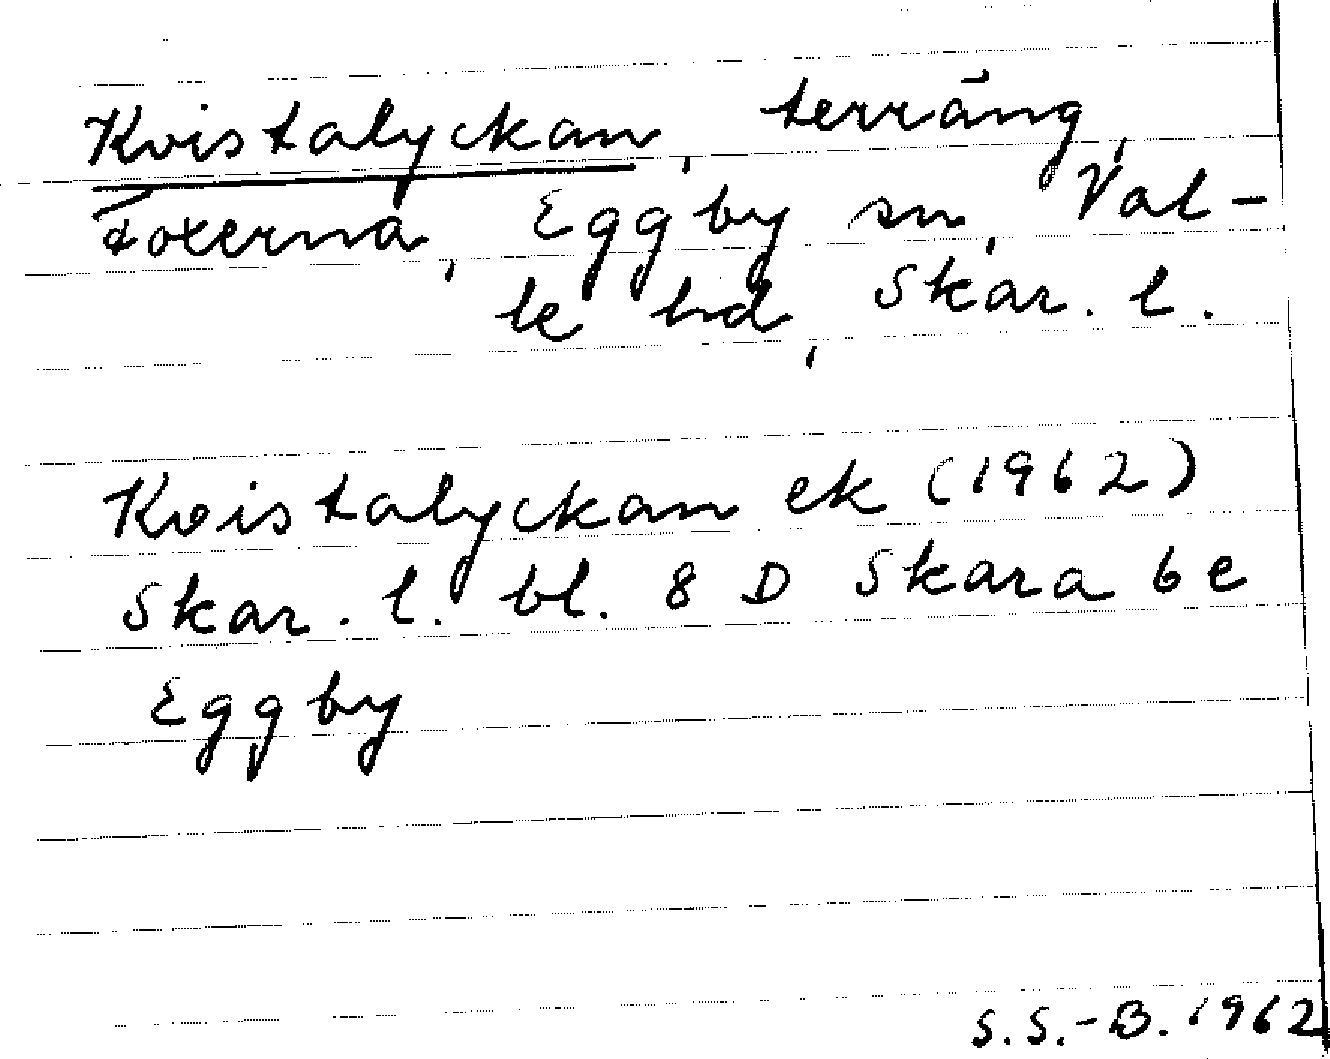 Kvistalyckan, terräng,
Toxerna, Eggby sn, Val-
le hd, Skar. l.
Kvistalyckan ek (1962)
Skar. l. bl. 8 D Skara 6 e
Eggby
S.S.-B. 1962